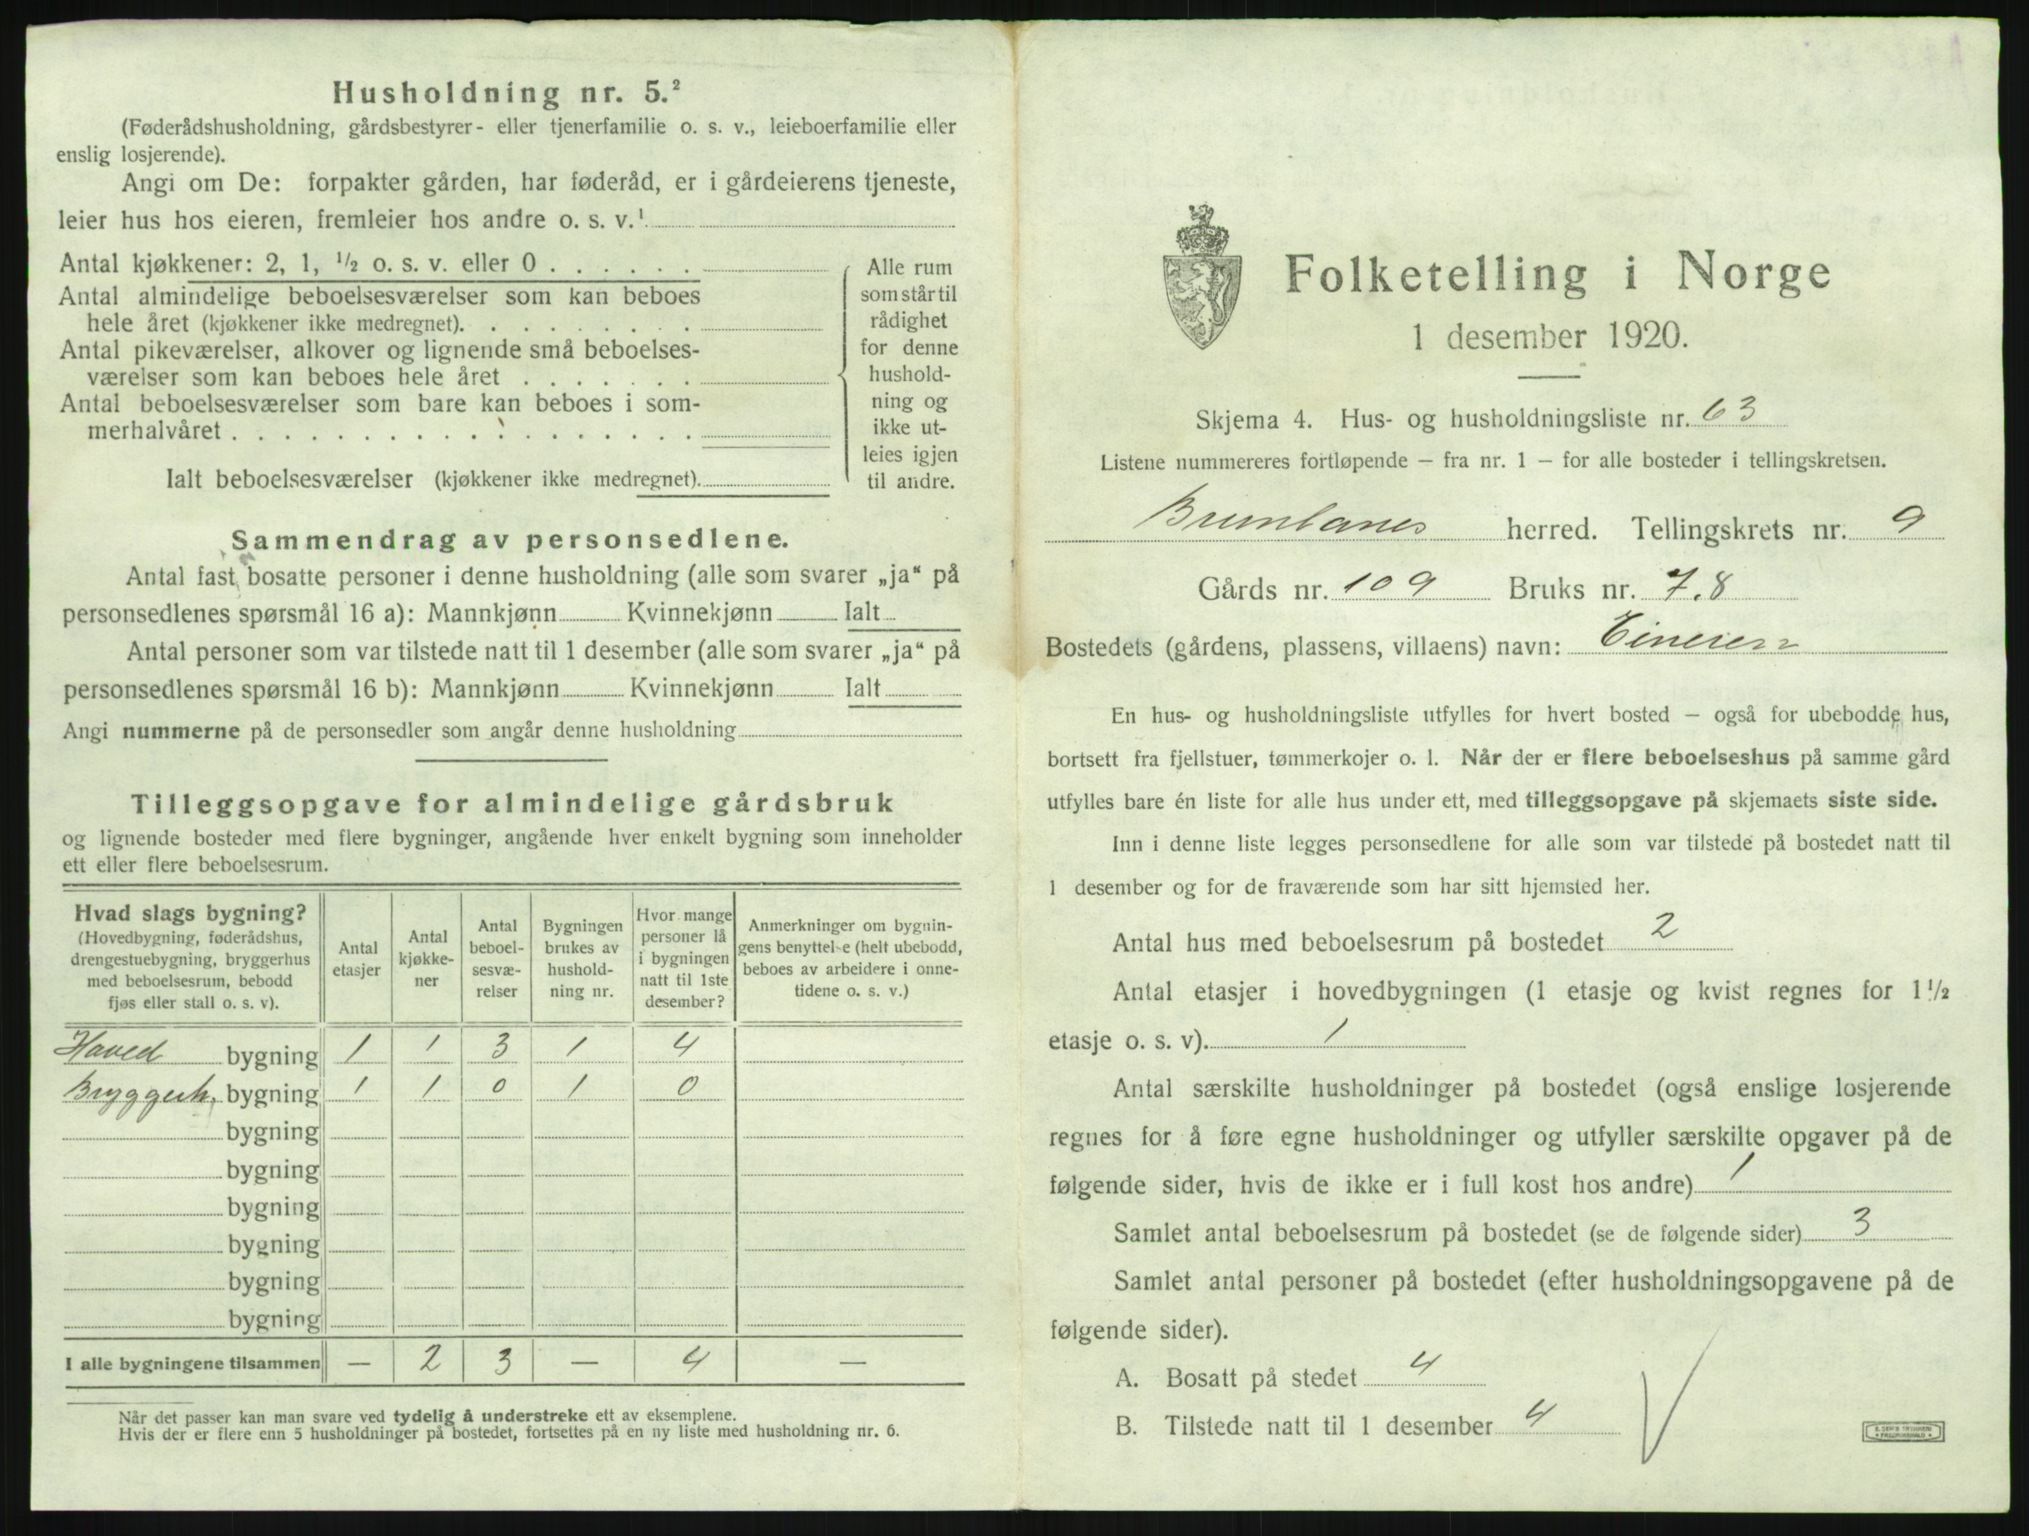 Husholdning nr. 5.²
(Føderådshusholdning, gårdsbestyrer- eller tjenerfamilie o. s. v., leieboerfamilie eller
enslig losjerende).
Angi om De: forpakter gården, har føderåd, er i gårdeierens tjeneste,
leier hus hos eieren, fremleier hos andre o. s. v.¹
Antal kjøkkener: 2, 1, ½ o. s. v. eller 0 . . . . . .
Antal almindelige beboelsesværelser som kan beboes
hele året (kjøkkener ikke medregnet). . . . . . . . .
Antal pikeværelser, alkover og lignende små beboelses-
værelser som kan beboes hele året . . . . . . .
Antal beboelsesværelser som bare kan beboes i som-
merhalvåret . . . . . . . . . . . . . . . . . .
Ialt beboelsesværelser (kjøkkener ikke medregnet).
Alle rum
som står til
rådighet
for denne
hushold-
ning og
ikke ut-
leies igjen
til andre.
Sammendrag av personsedlene.
Antal fast bosatte personer i denne husholdning (alle som svarer „ja“ på
personsedlenes spørsmål 16 a): Mannkjønn Kvinnekjønn Ialt
Antal personer som var tilstede natt til 1 desember (alle som svarer „ja“ på
personsedlenes spørsmål 16 b): Mannkjønn Kvinnekjønn Ialt
Angi nummerne på de personsedler som angår denne husholdning
Tilleggsopgave for almindelige gårdsbruk
og lignende bosteder med flere bygninger, angående hver enkelt bygning som inneholder
ett eller flere beboelsesrum.
Hvad slags bygning?
(Hovedbygning, føderådshus,
drengestuebygning, bryggerhus
med beboelsesrum, bebodd
fjøs eller stall o. s. v).
Antal
etasjer
Antal
kjøkke-
ner
Antal
beboel-
sesvæ-
relser
Bygningen
brukes av
hushold-
ning nr.
Hvor mange
personer lå
i bygningen
natt til 1ste
desember?
Anmerkninger om bygnin-
gens benyttelse (helt ubebodd,
beboes av arbeidere i onne-
tidene o. s. v.)
Hoved bygning 1 1 3 1 4
Bryggerh. bygning 1 1 0 1 0
bygning
bygning
bygning
bygning
bygning
bygning
I alle bygningene tilsammen — 2 3 — 4 —
Når det passer kan man svare ved tydelig å understreke ett av eksemplene.
Hvis der er flere enn 5 husholdninger på bostedet, fortsettes på en ny liste med husholdning nr. 6.
Folketelling i Norge
1 desember 1920.
Skjema 4. Hus- og husholdningsliste nr. 63
Listene nummereres fortløpende — fra nr. 1 — for alle bosteder i tellingskretsen.
Brunlanes herred. Tellingskrets nr. 9
Gårds nr. 109 Bruks nr. 7.8
Bostedets (gårdens, plassens, villaens) navn:
En hus- og husholdningsliste utfylles for hvert bosted — også for ubebodde hus,
bortsett fra fjellstuer, tømmerkojer o. l. Når der er flere beboelseshus på samme gård
utfylles bare én liste for alle hus under ett, med tilleggsopgave på skjemaets siste side.
Inn i denne liste legges personsedlene for alle som var tilstede på bostedet natt til
1 desember og for de fraværende som har sitt hjemsted her.
Antal hus med beboelsesrum på bostedet 2
Antal etasjer i hovedbygningen (1 etasje og kvist regnes for 1½
etasje o. s. v). 1
Antal særskilte husholdninger på bostedet (også enslige losjerende
regnes for å føre egne husholdninger og utfyller særskilte opgaver på de
følgende sider, hvis de ikke er i full kost hos andre) 1
Samlet antal beboelsesrum på bostedet (se de følgende sider) 3
Samlet antal personer på bostedet (efter husholdningsopgavene på de
følgende sider).
A. Bosatt på stedet 4
B. Tilstede natt til 1 desember 4